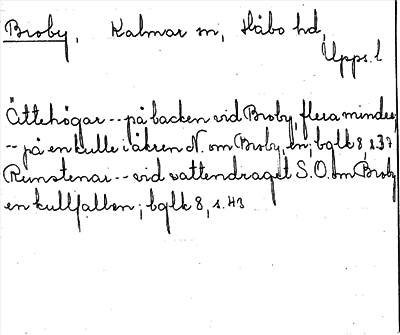 Broby, Kalmar sn, Håbo hd,
Upps. l
Ättehögar -- på backen vid Broby, flera mindre,
-- på en kulle i åkren N. om Broby, en; bglk 8, s. 37
Runstenar -- vid vattendraget S.O. om Broby
en kullfallen; bglk 8, s. 43